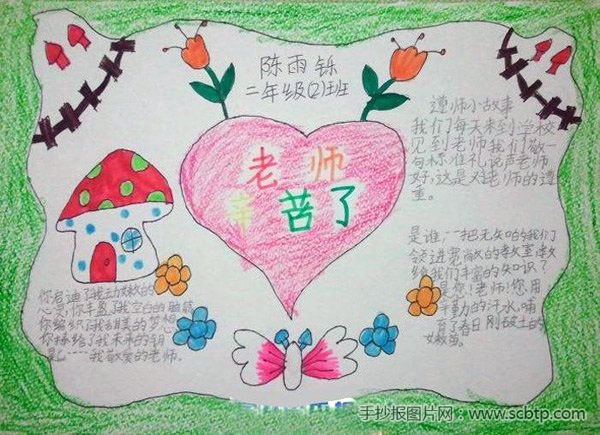 陈雨铄
二年级(2)班
老师
辛苦了
遵师小故事
我们每天来到学校
见到老师我们敬一
句标准礼说声老师
好,这是对老师的遵
重。
是谁,一把无知的我们
领进宽敞的教室,教
给我们丰富的知识?
是您!老师!您用
辛勤的汗水,哺
育了春日刚破土的
嫩苗。
你启迪了我幼嫩的
心灵,你丰盈了我空白的
你编织了我甜美的梦想
你 给了我未来的钥
匙……我敬爱的老师。
手抄报图片网：www.scbtp.com